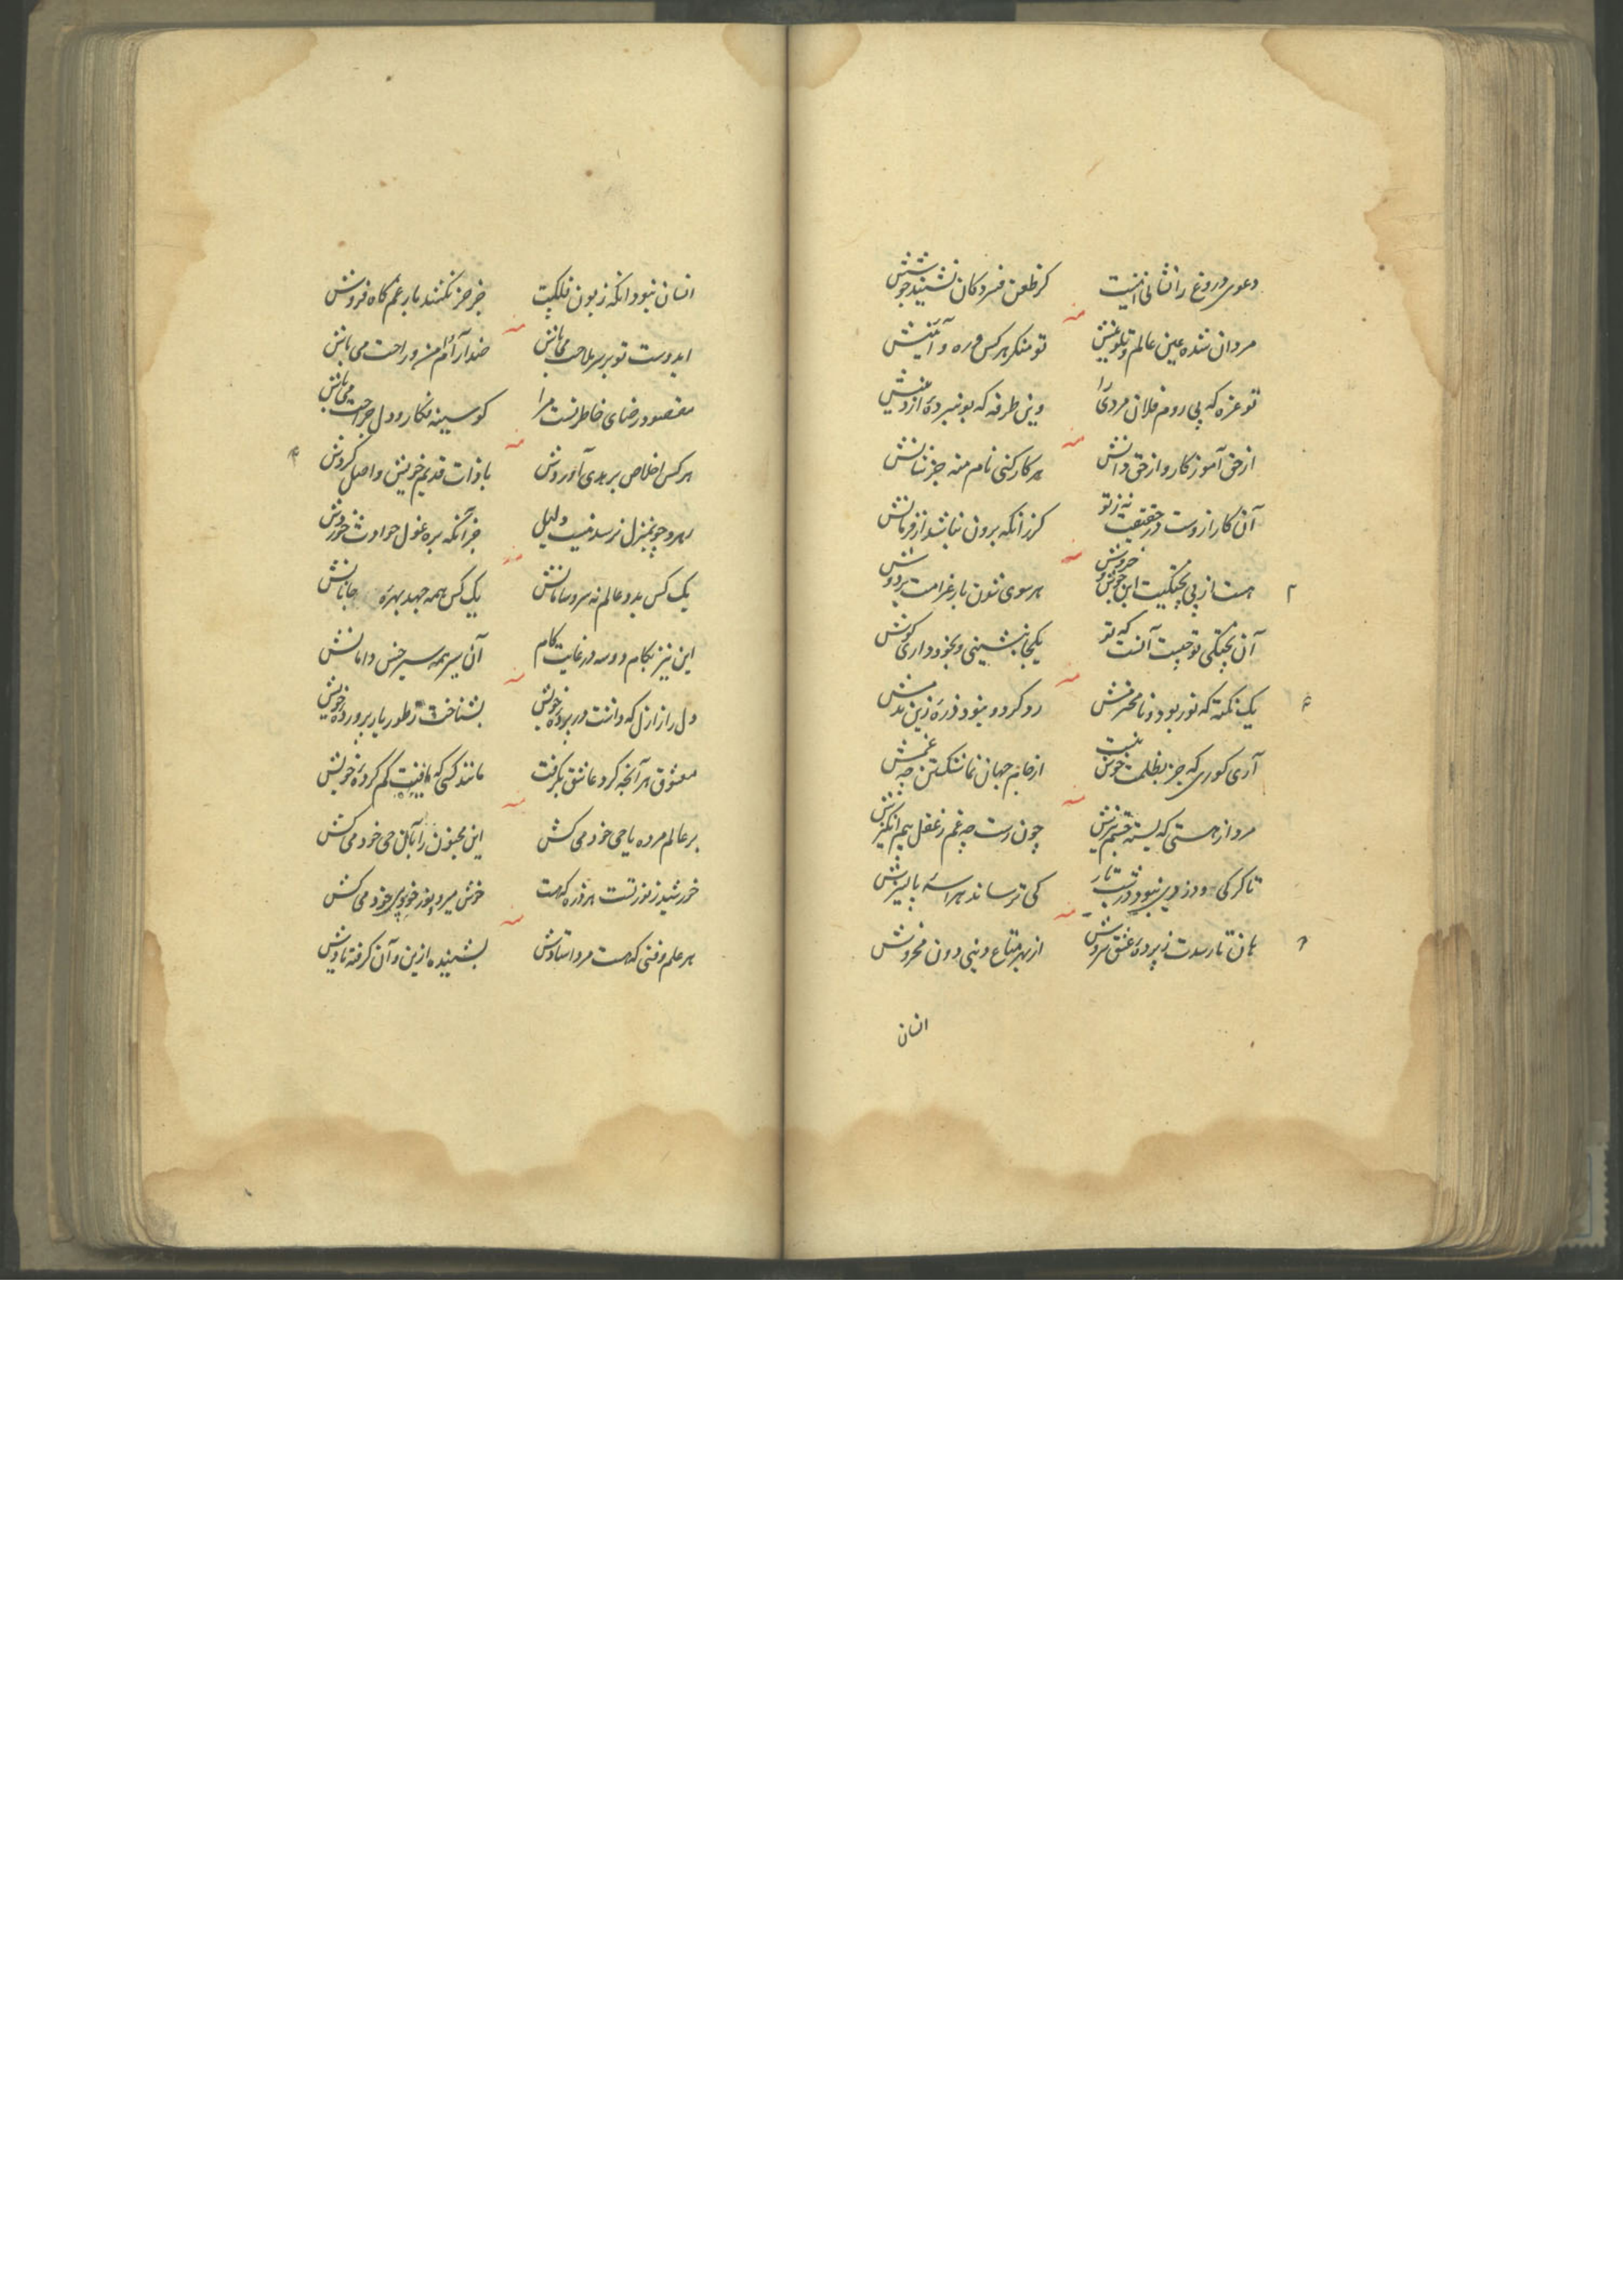 دعوی دروغ را نشانی اینست گر طعن فسردگان نشیند جوشش
مردان شده عین عالم و تلوینش تو منکر هر کس و ره و آئینش
تو غره که پی روم فلان مردی را وین طرفه که بو نبرده از دینش
از حق آموز کار و از حق دانش هر کار کنی نام منه جز شانش
آن کار ازوست در حقیقت نه ز تو کز آنکه برون نباشد از فرمانش
هست از پی پختگیت این جوش و خروش هر سوی شدن بار غرامت بر دوش
آن پختگی تو چیست آنست که تو یکجا بنشینی و بخود داری گوش
یک نکته که نور بود و نامحرمش رو کرد و نبود ذره زین
آری کوری که جز بظلمت خوش نیست از جام جهان نما شکستن چه غمش
مرد از هستی که چون رست چه غم ز عقل بیم انگیزش
تا کرکی و دزدی نبود در شب تار کی ترساند هراسه پالیزش
هان تا رسدت ز پرده عشق سروش از بهر متاع دینی دون مخروش
انسان
انسان نبود آنکه زبون فلکیت جز خر نکشد بار غم کاه فروش
ایدوست تو بر سر ملاحت می باش ضد آرام من و راحت می باش
مقصود رضای خاطر تست مرا گو سینه فکار و دل جراحت می باش
هر کس اخلاص بر هدی آوردش با ذات قدیم خویش واصل کردش
رهرو چو بمنزل نرسد نیست دلیل جز آنکه بره غول حوادث خوردش
یک کس بدو عالم نه سر و سامانش یک کس همه جهد بهره جانانش
این نیز بکام و وسه در غایت کام آن سیر همه سیر خس دامانش
دل راز ازل که داشت در پرده خویش بشناخت ز طور یار پرورده خویش
معشوق هر آنچه کرد عاشق بگرفت مانند کسی که یافت گم کرده خویش
بر عالم مرده یا حی خود می کش این مجنون را بآن حی خود می کش
خورشید ز نور تست هر ذره که هست خوش میرو و نور خود پی خود می کش
هر علم و فنی که هست مرد استادش بشنیده ازین و آن گرفته یادش